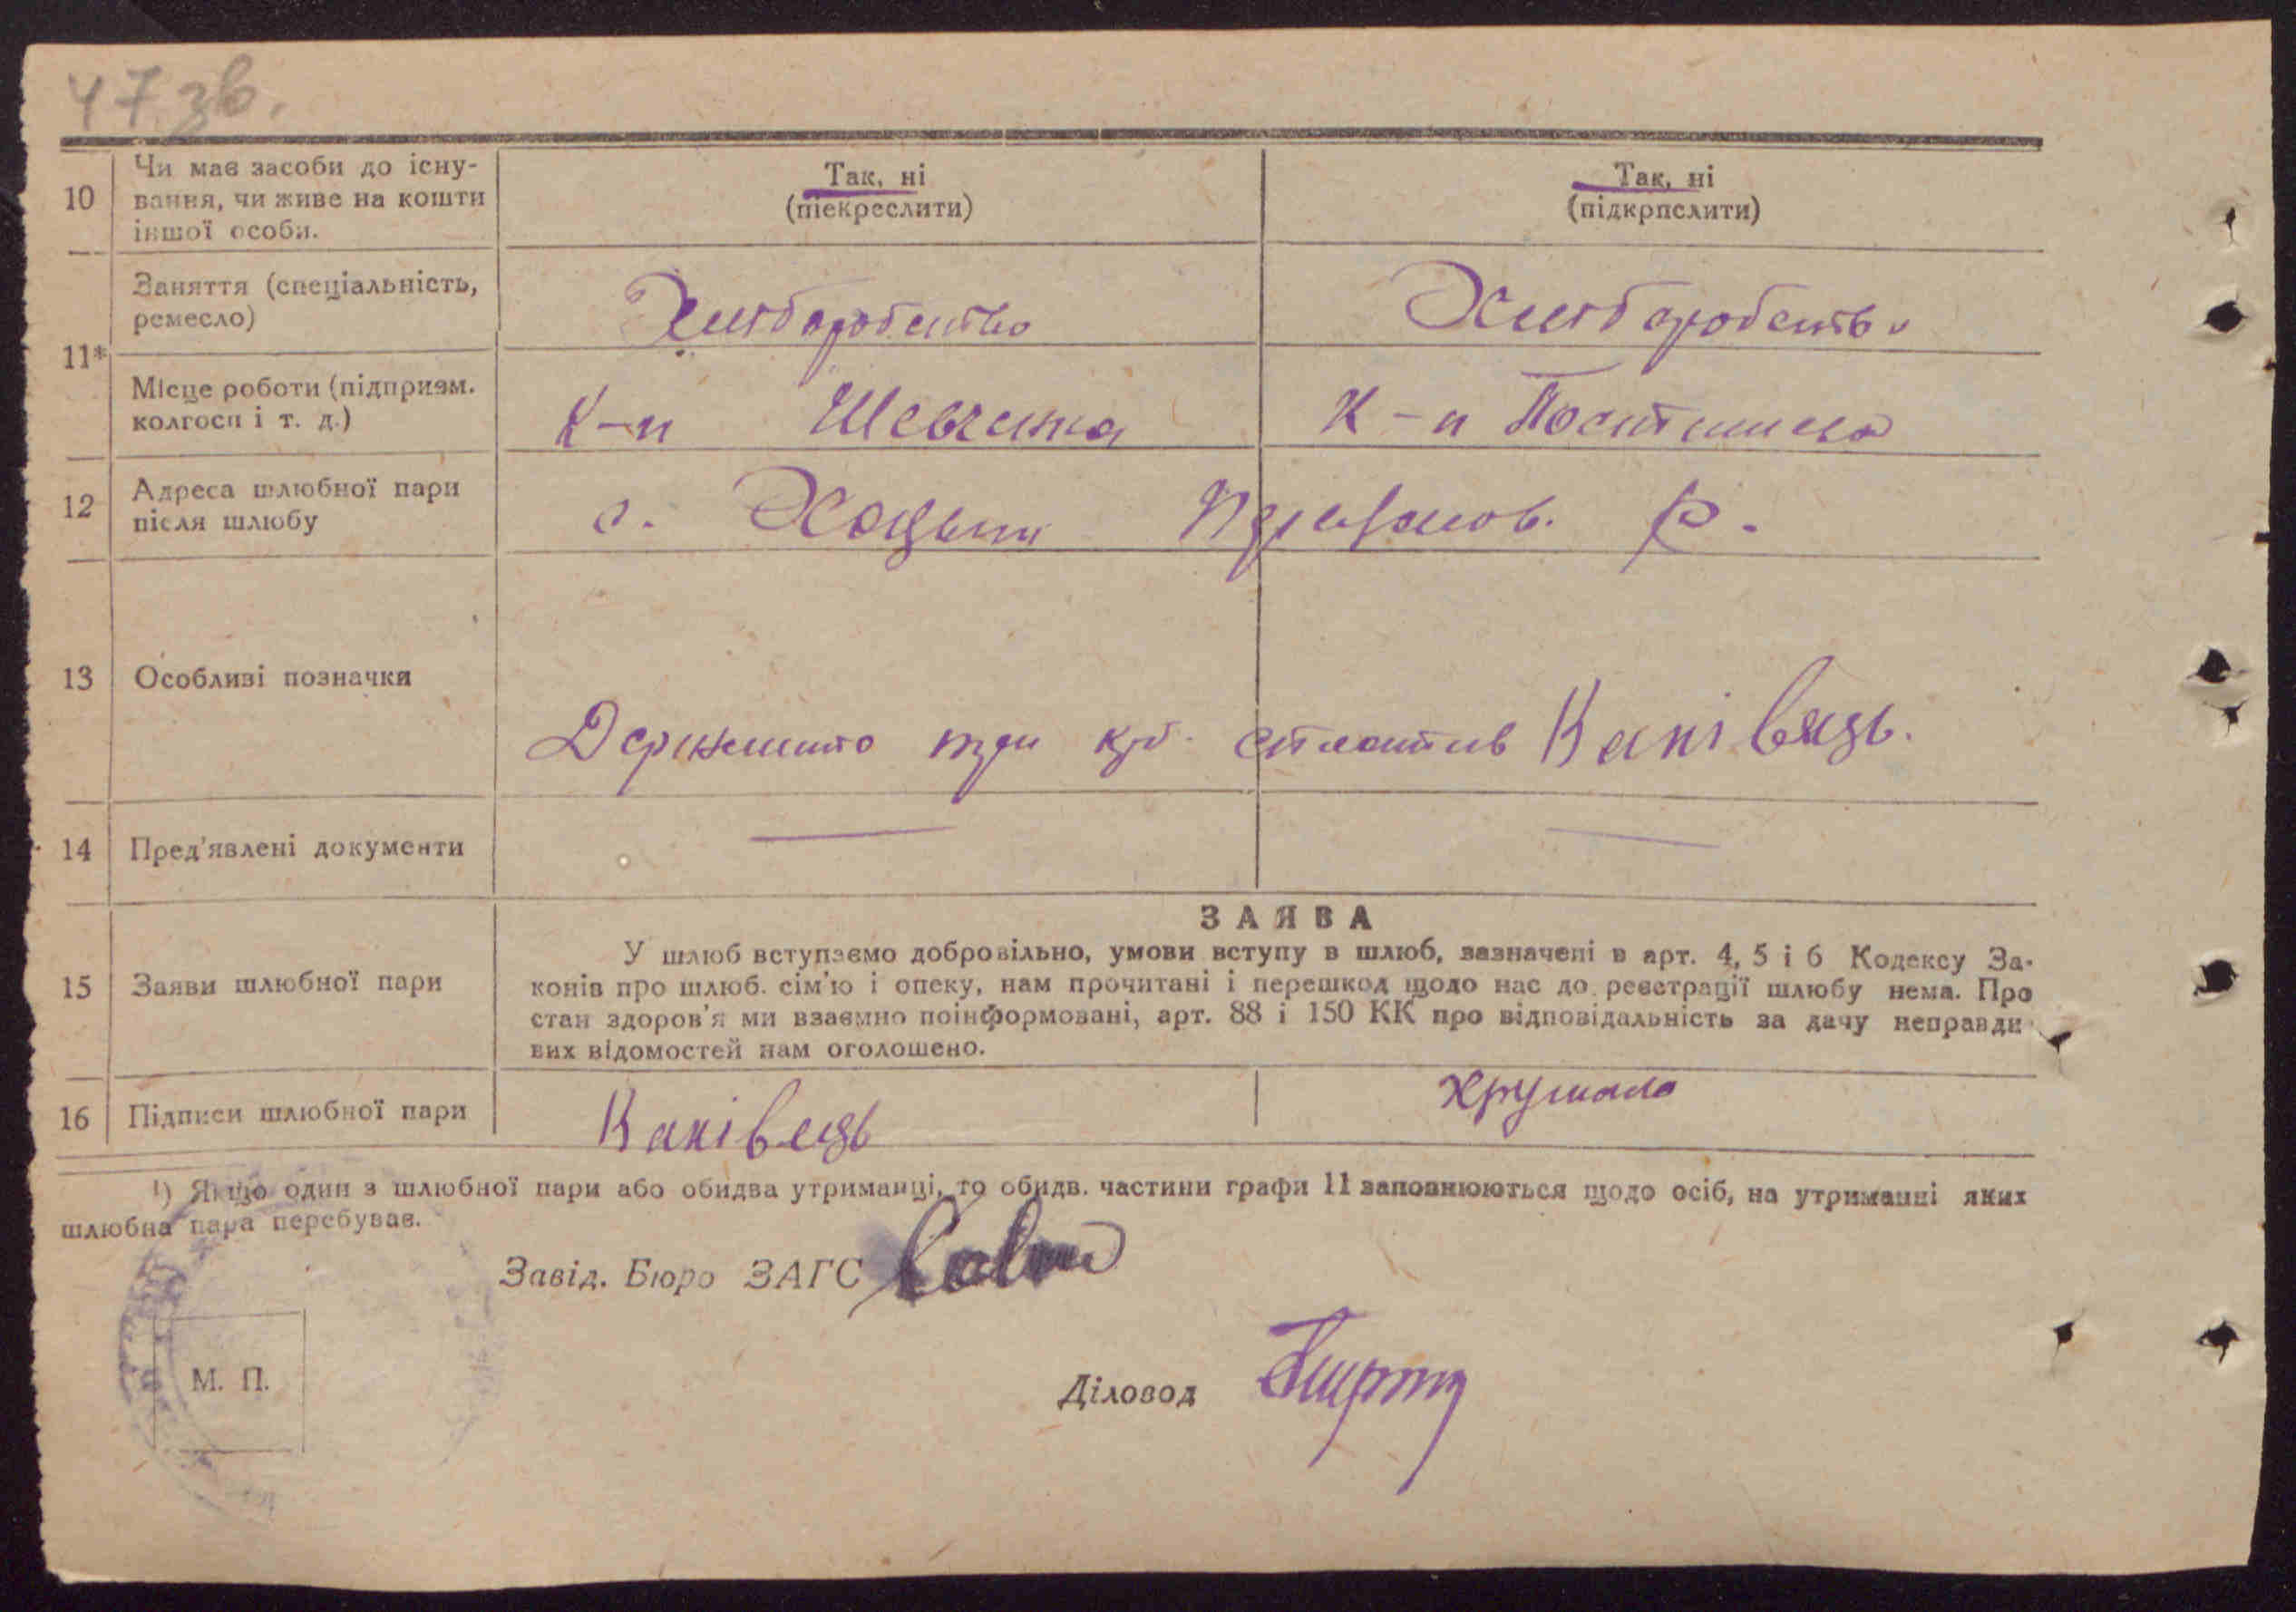 47 зв.
10
Чи має засоби до існу-
вання, чи живе на кошти
іншої особи.
Так, ні
(піекреслити)
Так, ні
(підкрпслити)
11*
Заняття (спеціальність,
ремесло)
Хліборобство
Хліборобств
Місце роботи (підприєм.
колгосп і т. д.)
К-п Шевченка
К-п Постишева
12
Адреса шлюбної пари
після шлюбу
с. Хоцьки Переяслов. р.
13
Особливі позначки
Держмито три крб. сплатив Канівець.
14
Пред'явлені документи
15
Заяви шлюбної пари
ЗАЯВА
У шлюб вступаємо добровільно, умови вступу в шлюб, зазначені в арт. 4, 5 і 6 Кодексу За-
конів про шлюб. сім'ю і опеку, нам прочитані і перешкод щодо нас до реєстрації шлюбу нема. Про
стан здоров'я ми взаємно поінформовані, арт. 88 і 150 КК про відповідальність за дачу неправди
вих відомостей нам оголошено.
16
Підписи шлюбної пари
Канівець
1) Якщо один з шлюбної пари або обидва утриманці, то обидв. частини графи 11 заповнюються щодо осіб, на утриманні яких
шлюбна пара перебуває.
Завід. Бюро ЗАГС
М. П.
Діловод